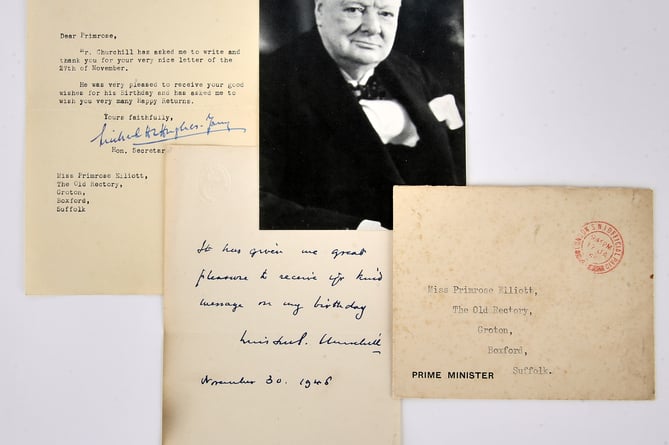 Dear Primrose,
Mr. Churchill has asked me to write and
thank you for your very nice letter of the
27th of November.
He was very pleased to receive your good
wishes for his Birthday and has asked me to
wish you very many Happy Returns.
Yours faithfully,
Hon. Secretar
Miss Primrose Elliott,
The Old Rectory,
Groton,
Boxford,
Suffolk
It has given me great
pleasure to receive yr kind
message on my birthday
Winston S. Churchill
November 30. 1946
Miss Primrose Elliott,
The Old Rectory,
Groton,
Boxford,
Suffolk.
PRIME MINISTER